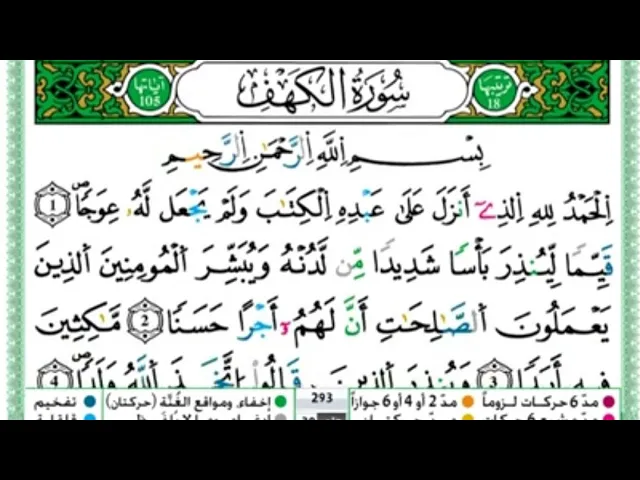 ترتيبها 18 سُورَةُ الْكَهْفِ آياتها 105
بِسْمِ اِللَّهِ اِلرَّحْمَٰنِ اِلرَّحِيمِ
اِلْحَمْدُ لِلهِ اِلذِےٓ أَنزَلَ عَلَىٰ عَبْدِهِ اِلْكِتَٰبَ وَلَمْ يَجْعَل لَّهُۥ عِوَجاٗۖ 1
قَيِّماٗ لِّيُنذِرَ بَأْساٗ شَدِيداٗ مِّن لَّدُنْهُ وَيُبَشِّرَ اَلْمُومِنِينَ اَلذِينَ
يَعْمَلُونَ اَلصَّٰلِحَٰتِ أَنَّ لَهُمُۥٓ أَجْراً حَسَناٗ 2 مَّٰكِثِينَ
فِيهِ أَبَداٗ 3 وَيُنذِرَ اَلذِينَ قَالُواْ اُ۪تَّخَذَ اَللَّهُ وَلَداٗۖ 4
مدّ 6 حركات لزوماً مدّ 2 أو 4 أو 6 جوازاً 293 إخفاء، ومواقع الغُنّة (حركتان) تفخيم